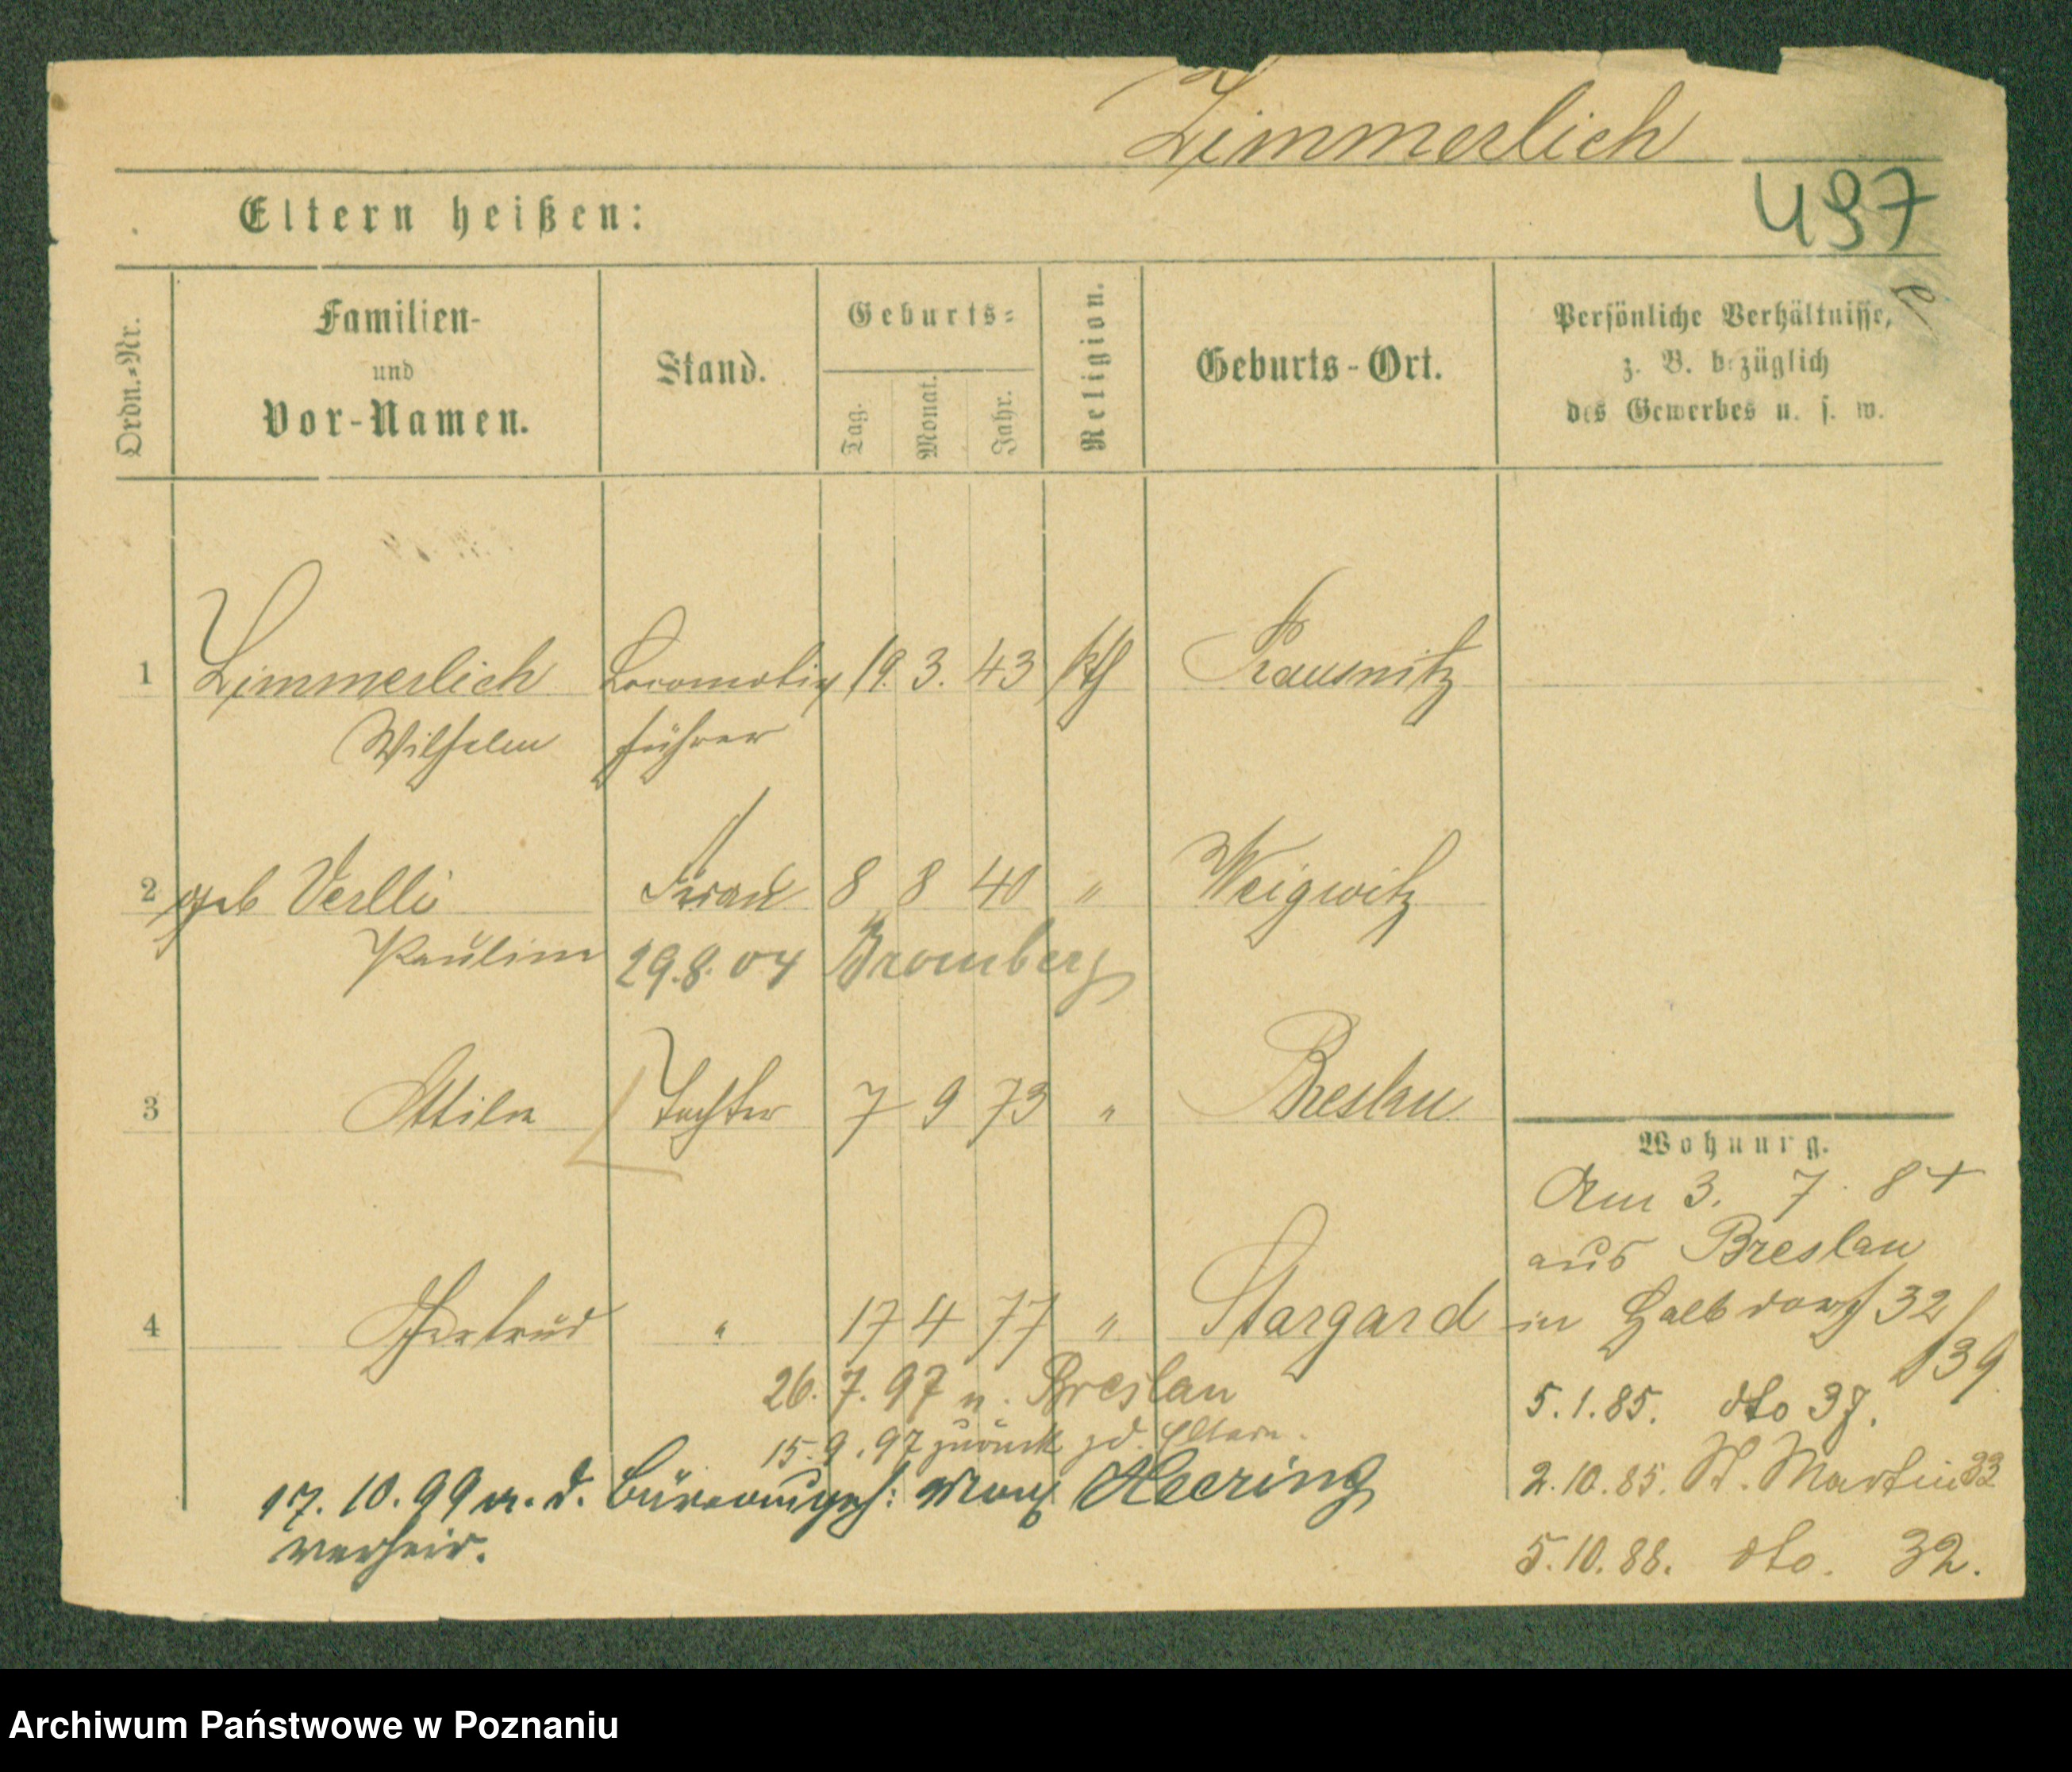 Zimmerlich
497
Eltern heißen:
Ordn.-Nr.
Familien-
und
Vor-Namen.
Stand.
Geburts-
Tag.
Monat.
Jahr.
Religion.
Geburts-Ort.
Persönliche Verhältnisse,
z. B. bezüglich
des Gewerbes u. s. w.
1 Zimmerlich Locomotiv 19. 3. 43 kth Trausnitz
Wilhelm führer
2 geb Frau 8 8 40 " Weigwitz
Pauline 29.8.04 Bromberg
3 Ottilie Tochter 7 9 73 " Breslau
4 Gertrud " 17 4 77 " Stargard
26. 7. 97 n. Breslau
15. 9. 97 zurück z d. Eltern.
17. 10. 99 m. d. Büreaugeh: Max Heering
verheir.
Wohnung.
Am 3. 7. 84
aus Breslau
in Halbdorf 32/39
5. 1. 85. dto 37.
2. 10. 85. St. Martin 33
5. 10. 88. dto. 32.
Archiwum Państwowe w Poznaniu